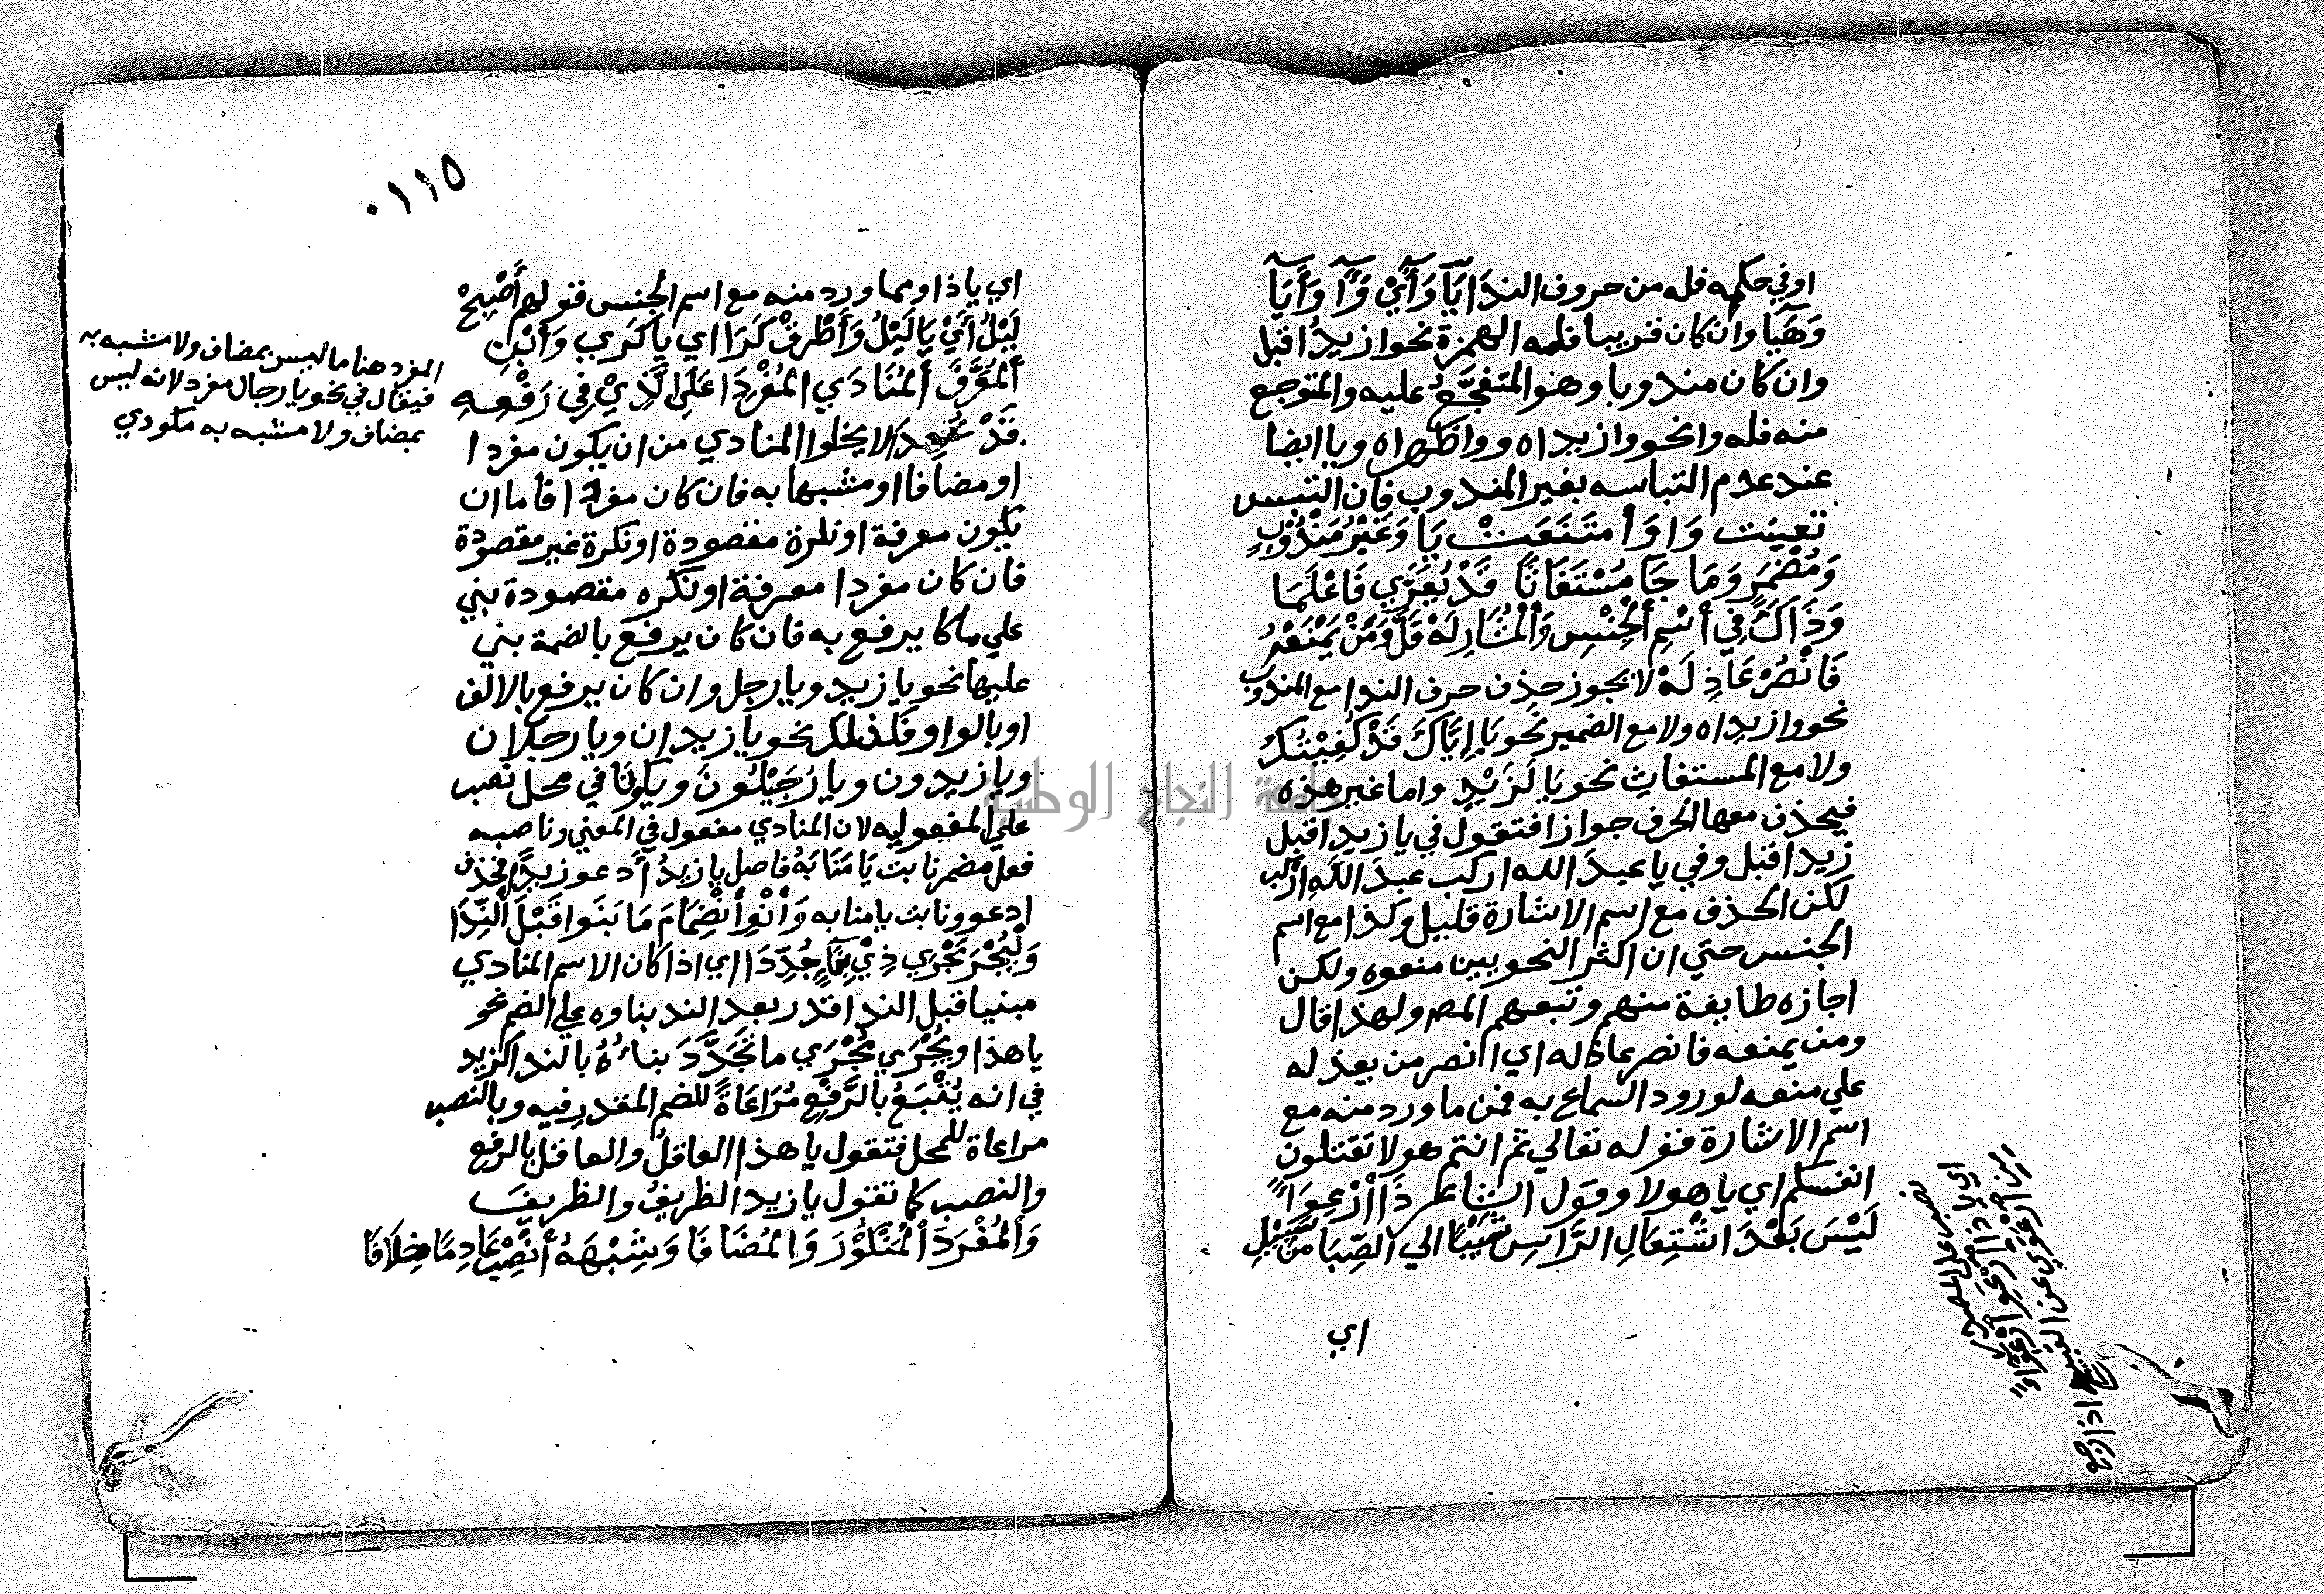 اوفي حكمه فله من حروف الندا يَا وَأَيْ وَآ وَأَيَا
وَهَيَا وان كان قريبا فله الهمزة نحو ازيدُ اقبل
وان كان مندوبا وهو المتفجَّعُ عليه والمتوجع
منه فله وا نحو وازيداه وواظهراه ويا ايضا
عند عدم التباسه بغير المندوب فان التبس
تعينت وَا وَأمتَنَعَتْ يَا وَغَيْرُ مَنْدُوبٍ
وَمُضْمَرٍ وَمَا جَا مُسْتَغَاثًا قَدْ يُعَرَّي فَاعْلَمَا
وَذَاكَ فِي أسْمِ ألْجِنْسِ وَألْمُشَارِ لَهْ قَلَّ وَمَنْ يَمْنَعْهُ
فَانْصُرْ عَاذِلَهْ لا يجوز حذف حرف الندا مع المندوب
نحو وازيداه ولا مع الضمير نحو يَا إِيَّاكَ قَدْ كُفِيْتُكَ
ولا مع المستغاثِ نحو يَا لَزَيْدٍ واما غير هذه
فيحذف معها الحرف جوازا فتقول في يا زيد اقبل
زيد اقبل وفي يا عبدَ الله اركب عبدَ اللهِ اركب
لكن الحذف مع اسم الاشارة قليل وكذا مع اسم
الجنس حتي ان اكثر النحويين منعوه ولكن
اجازه طايفة منهم وتبعهم المص ولهذا قال
ومن يمنعه فانصر عاذله اي انصر من يعذله
علي منعه لورود السماع به فمن ما ورد منه مع
اسم الاشارة قوله تعالي ثم انتم هولا تقتلون
انفسكم اي يا هولا وقول الشاعر ذَا أرْعِوَاءً
لَيْسَ بَعْدَ اشْتِعَالِ الرَّاسِ شَيْبًا الي الصِّبَا مَنْ سَبِيْلِ
اي
٠١١٥
اي يا ذا ومما ورد منه مع اسم الجنس قولهم أَصْبِحْ
لَيْلُ أَيْ يَا لَيْلُ وَأَطْرِقْ كَرَا اي يا كَرَي وَأبْنِ
ألْمُعَرَّفَ ألمُنَادَي المُفْرَدَا عَلَي الَّذِيْ فِي رَفْعِهِ
قَدْ عُهِدَا لا يخلوا المنادي من ان يكون مفردا
او مضافا او مشبها به فان كان مفردا فاما ان
يكون معرفة او نكرة مقصودة او نكرة غير مقصودة
فان كان مفردا معرفة او نكره مقصودة بني
علي ما كا يرفع به فان كان يرفع بالضمة بني
عليها نحو يا زيد ويا رجل وان كان يرفع بالالف
او بالواو فكذلك نحو يا زيدان ويا رجلان
ويا زيدون ويا رُجَيْلُونَ ويكونَا في محل نصب
علي المفعوليه لان المنادي مفعول في المعني وناصبه
فعل مضمر نابت يَا مَنَابَهُ فاصل يا زيدُ أدعو زيدًا فحذف
ادعو ونابت يا منابه وَأنْوِ أنْضِمَامَ مَا بَنَوا قَبْلَ ألنِّدَا
وَلْيُجْرَ مَجْرَي ذِيْ بِنَاءٍ جُدِّدَا اي اذا كان الاسم المنادي
مبنيا قبل الندا قدر بعد الند بناوه علي الضم نحو
يا هذا ويُجْرَي مُجْرَي ما تَجَدَّدَ بناءُهُ بالندا كزيد
في انه يُتْبَعُ بالرَّفْعِ مُرَاعَاةً للضم المقدر فيه وبالنصب
مراعاة للمحل فتقول يا هذا العاقلُ والعاقلَ بالرفع
والنصب كما تقول يا زيد الظريفُ والظريفَ
وَألمُفْرَدَ ألمَنْكُوْرَ وَالمُضَافَا وَشِبْهَهُ أنْصِبْ عَادِمًا خِلَافَا
المفرد هنا ما ليس بمضاف ولا مشبه به
فيقال في نحو يا رجال مفرد لانه ليس
بمضاف ولا مشبه به مكودي
جامعة النجاح الوطنية